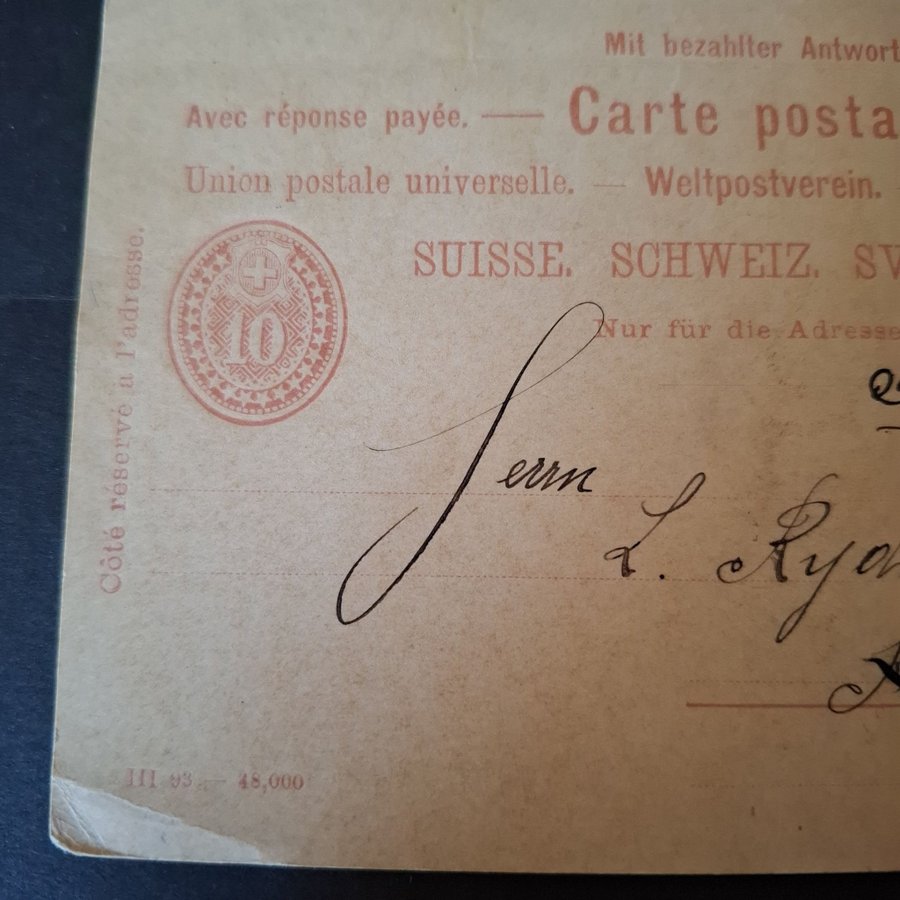 Mit bezahlter Antwort
Avec réponse payée. — Carte posta
Union postale universelle. — Weltpostverein.
SUISSE. SCHWEIZ. SV
Nur für die Adresse
Côté réservé à l'adresse.
10
Herrn
L. Ryd
III 93. — 48,000